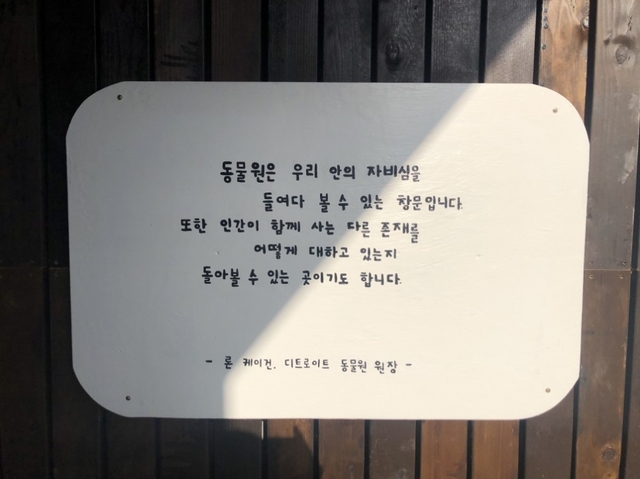 동물원은 우리 안의 자비심을
들여다 볼 수 있는 창문입니다.
또한 인간이 함께 사는 다른 존재를
어떻게 대하고 있는지
돌아볼 수 있는 곳이기도 합니다.
- 론 케이건, 디트로이트 동물원 원장 -